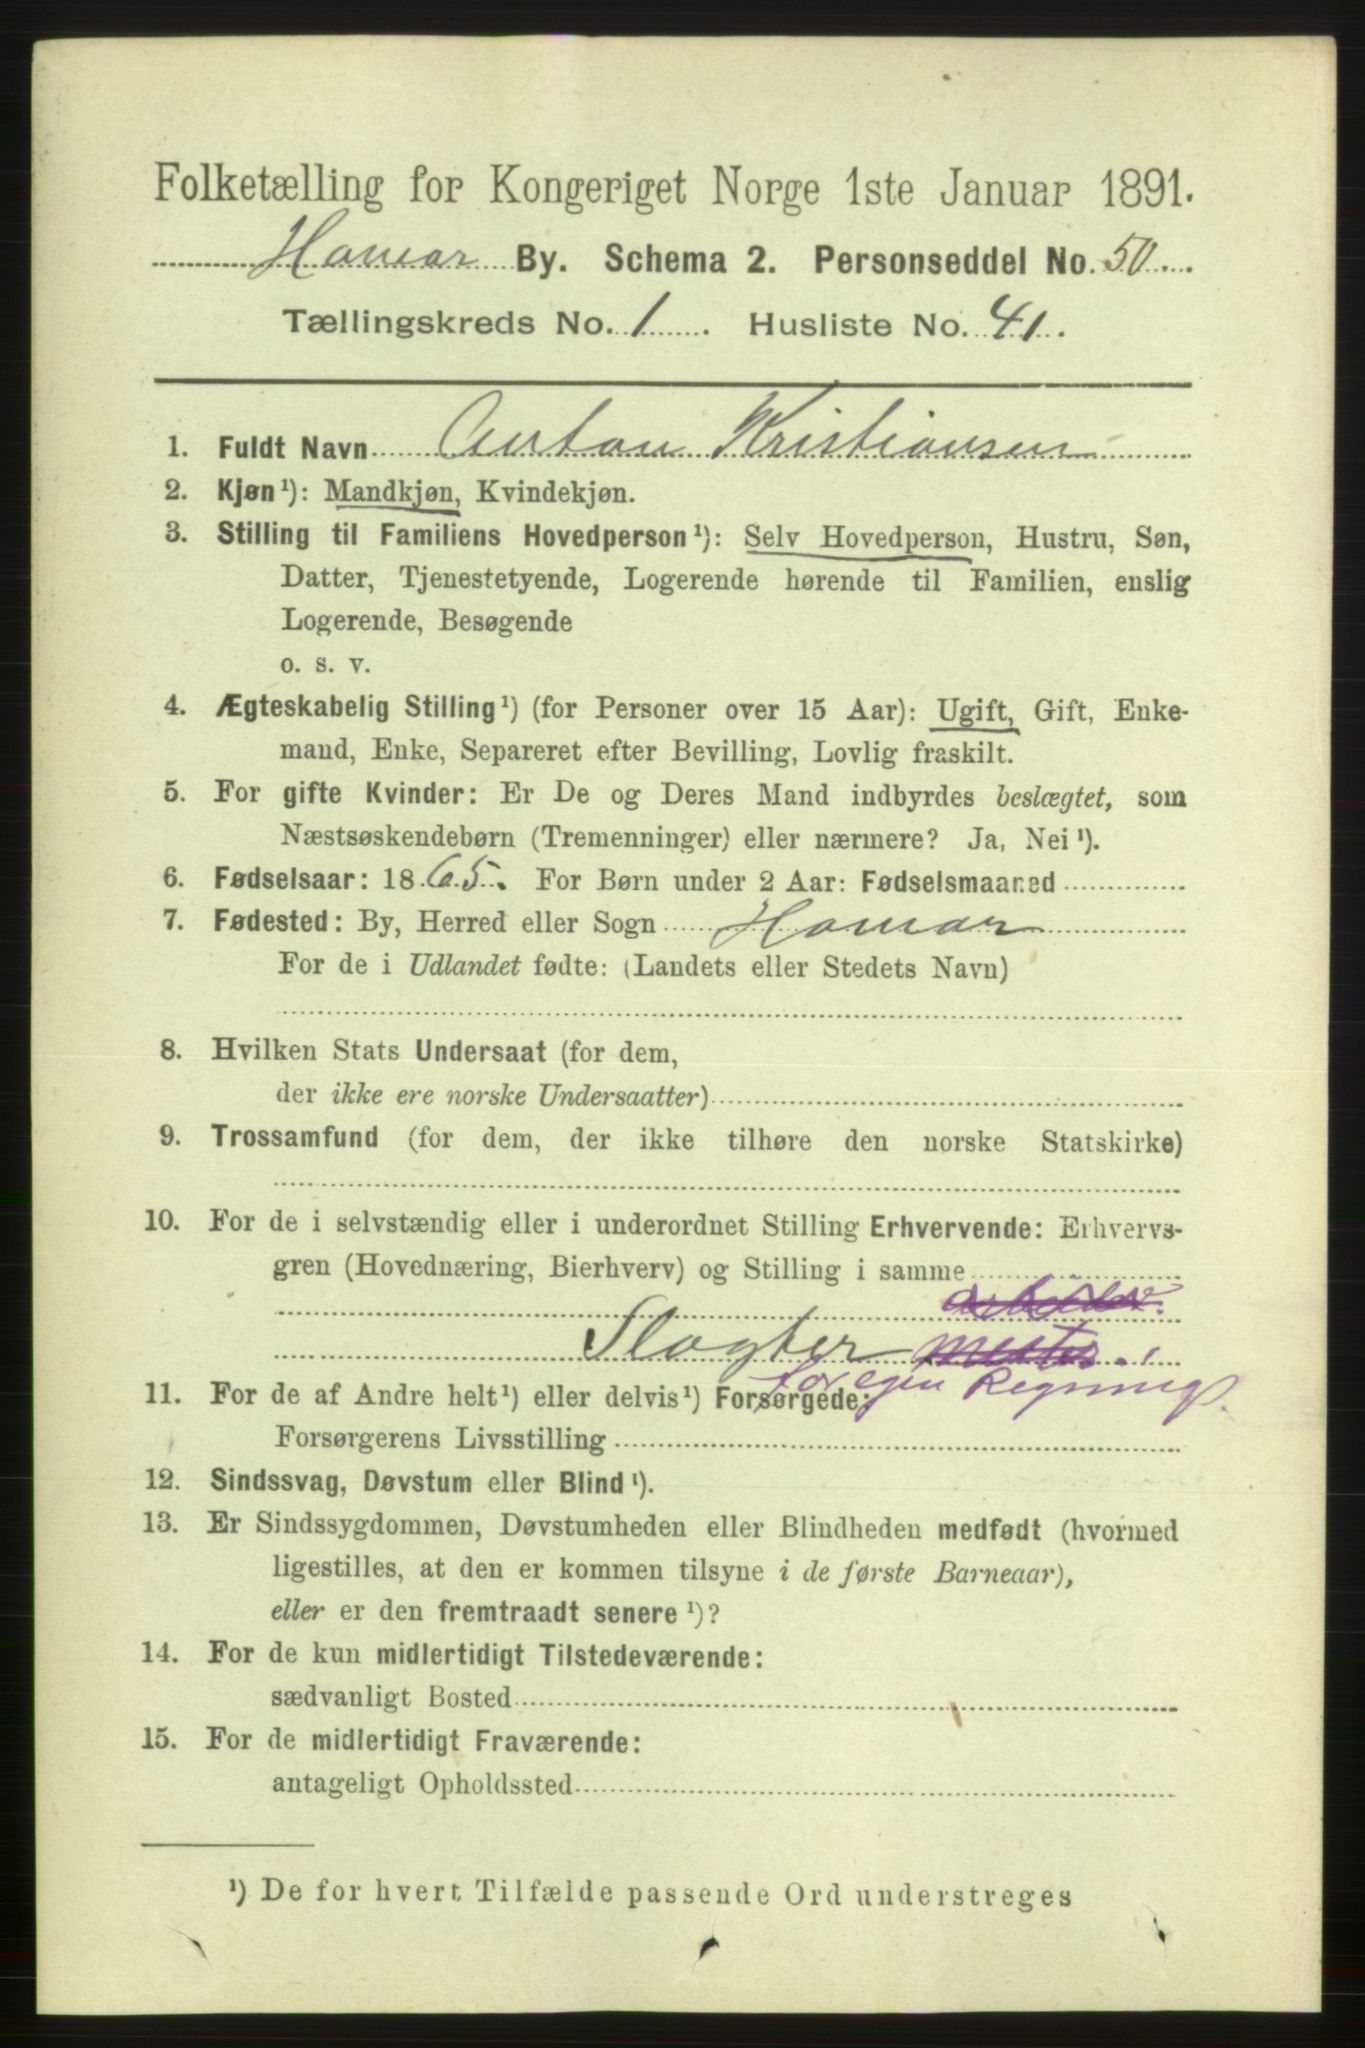 Folketælling for Kongeriget Norge 1ste Januar 1891.
Hamar By. Schema 2. Personseddel No. 50
Tællingskreds No. 1. Husliste No. 41.
1. Fuldt Navn Anton Kristiansen
2. Kjøn¹): Mandkjøn, Kvindekjøn.
3. Stilling til Familiens Hovedperson¹): Selv Hovedperson, Hustru, Søn,
Datter, Tjenestetyende, Logerende hørende til Familien, enslig
Logerende, Besøgende
o. s. v.
4. Ægteskabelig Stilling¹) (for Personer over 15 Aar): Ugift, Gift, Enke-
mand, Enke, Separeret efter Bevilling, Lovlig fraskilt.
5. For gifte Kvinder: Er De og Deres Mand indbyrdes beslægtet, som
Næstsøskendebørn (Tremenninger) eller nærmere? Ja, Nei¹).
6. Fødselsaar: 1865. For Børn under 2 Aar: Fødselsmaaned
7. Fødested: By, Herred eller Sogn Hamar
For de i Udlandet fødte: (Landets eller Stedets Navn)
8. Hvilken Stats Undersaat (for dem,
der ikke ere norske Undersaatter)
9. Trossamfund (for dem, der ikke tilhøre den norske Statskirke)
10. For de i selvstændig eller i underordnet Stilling Erhvervende: Erhvervs-
gren (Hovednæring, Bierhverv) og Stilling i samme
arbeider.
Slagter mester.
for egen Regning.
11. For de af Andre helt¹) eller delvis¹) Forsørgede:
Forsørgerens Livsstilling
12. Sindssvag, Døvstum eller Blind¹).
13. Er Sindssygdommen, Døvstumheden eller Blindheden medfødt (hvormed
ligestilles, at den er kommen tilsyne i de første Barneaar),
eller er den fremtraadt senere¹)?
14. For de kun midlertidigt Tilstedeværende:
sædvanligt Bosted
15. For de midlertidigt Fraværende:
antageligt Opholdssted
¹) De for hvert Tilfælde passende Ord understreges